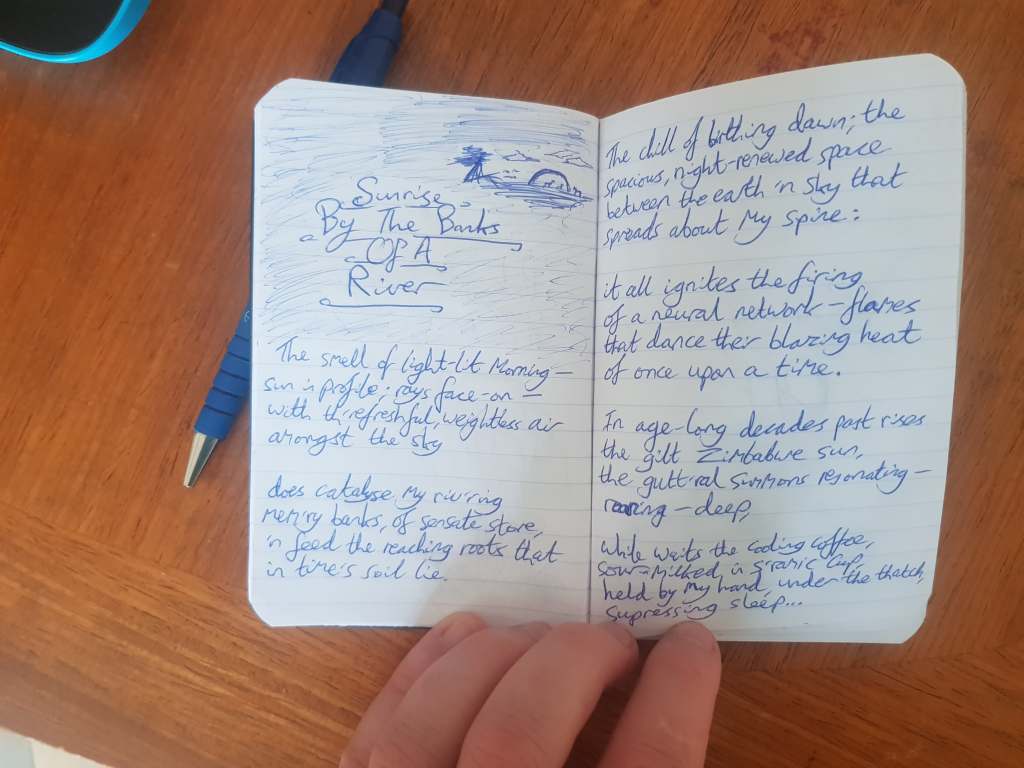 Sunrise
By The Banks
Of A
River
The smell of light-lit Morning —
sun in profile; rays face-on —
with th'refreshful, weightless air
amongst the sky
does catalyse my riv'ring
mem'ry banks, of sensate store,
'n feed the reaching roots that
in time's soil lie.
The chill of birthing dawn; the
spacious, night-renewed space
between the earth 'n sky that
spreads about my spine:
it all ignites the firing
of a neural network – flames
that dance their blazing heat
of once upon a time.
In age-long decades past rises
the gilt Zimbabwe sun,
the guttural summons resonating –
roaring – deep,
While waits the cooling coffee,
sour-milked, in c'ramic cup,
held by my hand, under the thatch,
supressing sleep...